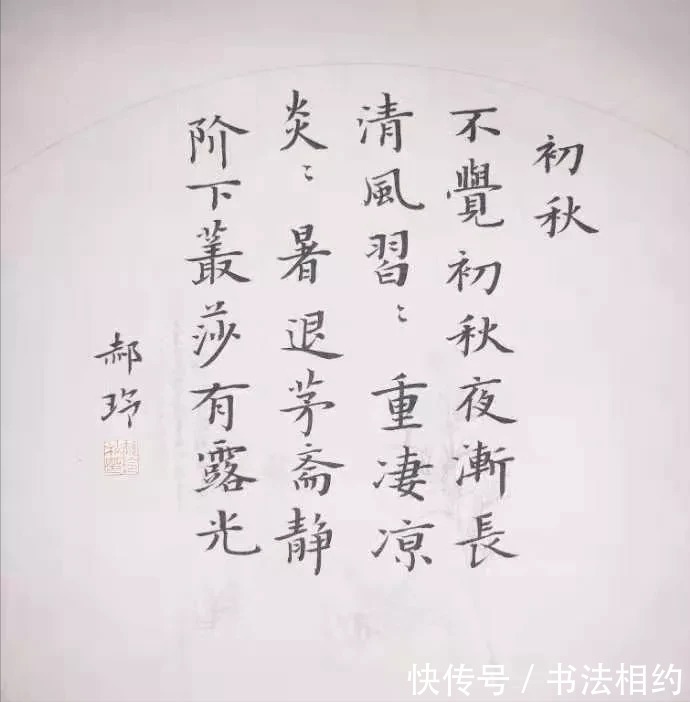 初秋
不覺初秋夜漸長
清風習〻重凄凉
炎〻暑退茅斋静
阶下叢莎有露光
郝玶
快传号/书法相约